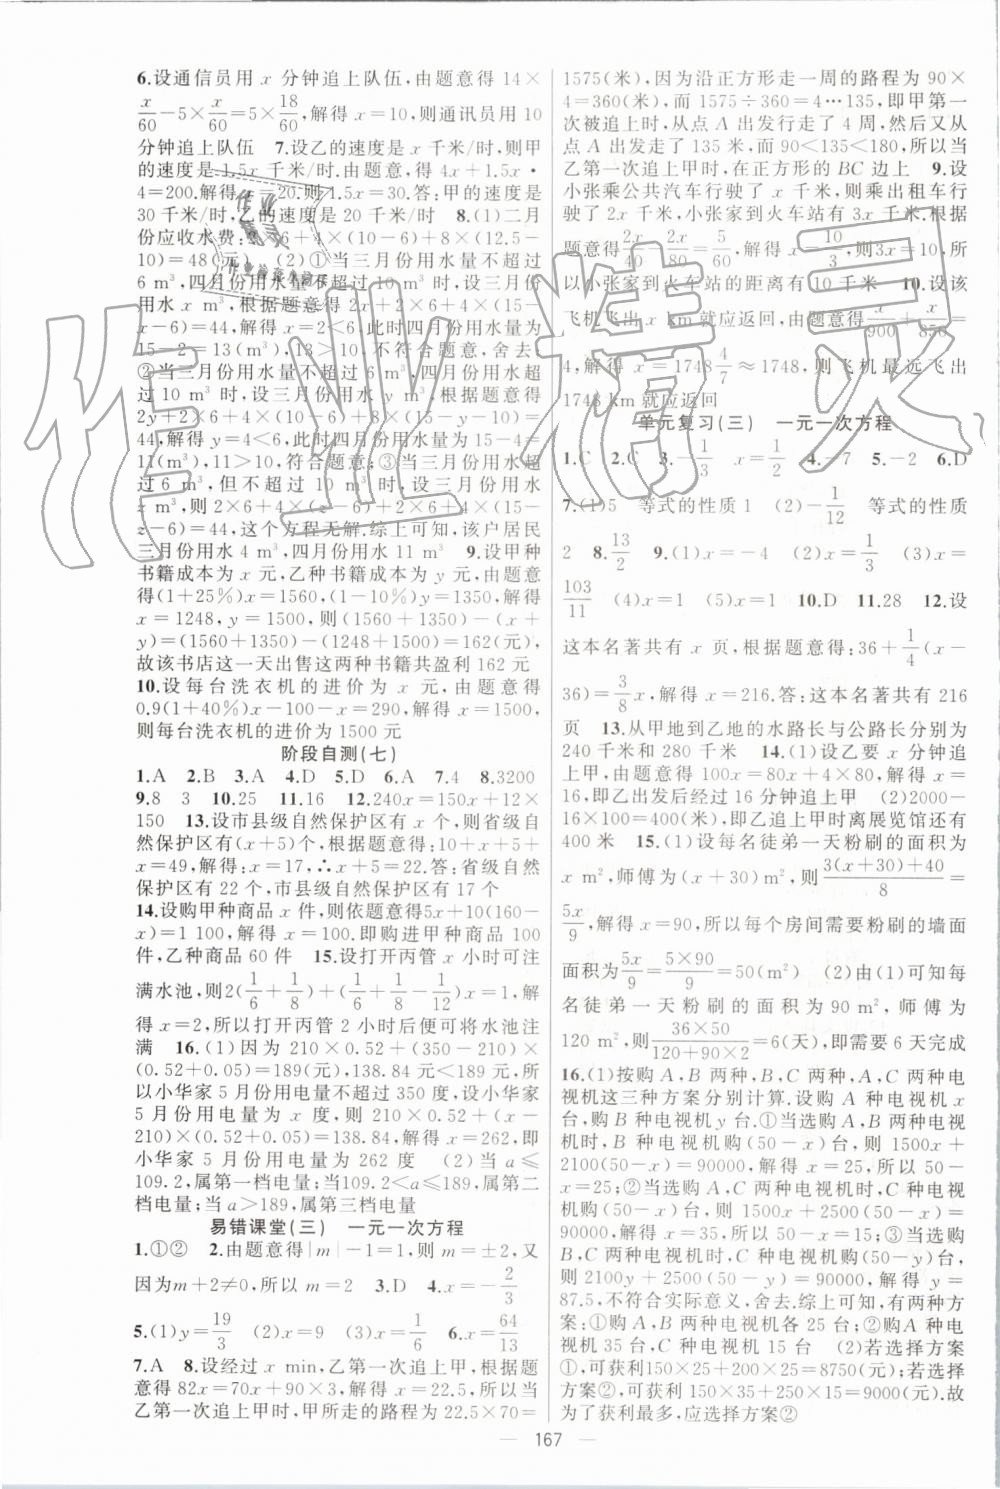 6.设通信员用 x 分钟追上队伍,由题意得 14×
x/60-5×x/60=5×18/60,解得 x=10,则通讯员用 10
分钟追上队伍 7.设乙的速度是 x 千米/时,则甲
的速度是 1.5x 千米/时,由题意,得 4x+1.5x·
4=200.解得 x=20.则 1.5x=30.答:甲的速度是
30 千米/时,乙的速度是 20 千米/时 8.(1)二月
份应收水费:2×6+4×(10-6)+8×(12.5-
10)=48(元) (2)①当三月份用水量不超过
6 m³,四月份用水量不超过 10 m³ 时,设三月份
用水 x m³,根据题意得 2x+2×6+4×(15-
x-6)=44,解得 x=2<6,此时四月份用水量为
15-2=13(m³),13>10,不符合题意,舍去;
②当三月份用水量不超过 6 m³,四月份用水超
过 10 m³ 时,设三月份用水 y m³,根据题意得
2y+2×6+4×(10-6)+8×(15-y-10)=
44,解得 y=4<6,此时四月份用水量为 15-4=
11(m³),符合题意;③当三月份用水量超过
6 m³,但不超过 10 m³ 时,设三月份用水
m³,则 2×6+4×(z-6)+2×6+4×(15-
z-6)=44,这个方程无解.综上可知,该户居民
三月份用水 4 m³,四月份用水 11 m³ 9.设甲种
书籍成本为 x 元,乙种书籍成本为 y 元,由题意
得(1+25%)x=1560,(1-10%)y=1350,解得
x=1248,y=1500,则(1560+1350)-(x+
y)=(1560+1350)-(1248+1500)=162(元),
故该书店这一天出售这两种书籍共盈利 162 元
10.设每台洗衣机的进价为 x 元,由题意得
0.9(1+40%)x-100-x=290,解得 x=1500,
则每台洗衣机的进价为 1500 元
阶段自测(七)
1.A 2.B 3.A 4.D 5.D 6.A 7.4 8.3200
9.8 3 10.25 11.16 12.240x=150x+12×
150 13.设市县级自然保护区有 x 个,则省级自然
保护区有(x+5)个,根据题意得:10+x+5+
x=49,解得:x=17,∴x+5=22.答:省级自然
保护区有 22 个,市县级自然保护区有 17 个
14.设购甲种商品 x 件,则依题意得5x+10(160-
x)=1 100,解得 x=100.即购进甲种商品 100
件,乙种商品 60 件 15.设打开丙管 x 小时可注
满水池,则2(1/6+1/8)+(1/6+1/8-1/12)x=1,解
得 x=2,所以打开丙管 2 小时后便可将水池注
满 16.(1)因为 210×0.52+(350-210)×
(0.52+0.05)=189(元),138.84 元<189 元,所
以小华家 5 月份用电量不超过 350 度,设小华家
5 月份用电量为 x 度,则 210×0.52+(x-
210)×(0.52+0.05)=138.84,解得 x=262,即
小华家 5 月份用电量为 262 度 (2)当 a≤
109.2,属第一档电量;当109.2<a≤189,属第二
档电量;当 a>189,属第三档电量
易错课堂(三) 一元一次方程
1.①② 2.由题意得|m|-1=1,则 m=±2,又
因为m+2≠0,所以 m=2 3.D 4.x=-2/3
5.(1)y=19/3 (2)x=9 (3)x=1/6 6.x=64/13
7.A 8.设经过 x min,乙第一次追上甲,根据题
意得 82x=70x+90×3,解得 x=22.5,所以当
乙第一次追上甲时,甲所走的路程为 22.5×70=
1575(米),因为沿正方形走一周的路程为 90×
4=360(米),而 1575÷360=4…135,即甲第一
次被追上时,从点 A 出发行走了 4 周,然后又从
点 A 出发走了 135 米,而 90<135<180,所以当
乙第一次追上甲时,在正方形的 BC 边上 9.设
小张乘公共汽车行驶了 x 千米,则乘出租车行
驶了 2x 千米,小张家到火车站有 3x 千米.根据
题意得2x/40-2x/80=5/60,解得 x=10/3,则3x=10,所
以小张家到火车站的距离有 10 千米 10.设该
飞机飞出 x km 就应返回,由题意得x/900+x/850=
4,解得 x=1748 4/7≈1748,则飞机最远飞出
1748 km就应返回
单元复习(三) 一元一次方程
1.C 2.C 3.-1/3 x=1/2 4.-7 5.-2 6.D
7.(1)5 等式的性质 1 (2)-1/12 等式的性质
2 8.13/2 9.(1)x=-4 (2)x=1/3 (3)x=
103/11 (4)x=1 (5)x=1 10.D 11.28 12.设
这本名著共有 x 页,根据题意得:36+1/4(x-
36)=3/8x,解得 x=216.答:这本名著共有 216
页 13.从甲地到乙地的水路长与公路长分别为
240 千米和 280 千米 14.(1)设乙要 x 分钟追
上甲,由题意得 100x=80x+4×80,解得 x=
16,即乙出发后经过 16 分钟追上甲 (2)2000-
16×100=400(米),即乙追上甲时离展览馆还有
400 米 15.(1)设每名徒弟一天粉刷的面积为
x m²,师傅为(x+30)m²,则3(x+30)+40/8=
5x/9,解得 x=90,所以每个房间需要粉刷的墙面
面积为5x/9=5×90/9=50(m²) (2)由(1)可知每
名徒弟一天粉刷的面积为 90 m²,师傅为
120 m²,则36×50/120+90×2=6(天),即需要 6 天完成
16.(1)按购 A,B 两种,B,C 两种,A,C 两种电
视机这三种方案分别计算.设购 A 种电视机 x
台,购 B 种电视机 y 台.①当选购 A,B 两种电视
机时,B 种电视机购(50-x)台,则 1500x+
2100(50-x)=90000,解得 x=25,所以 50-
x=25;②当选购 A,C 两种电视机时,C 种电视
机购(50-x)台,则 1500x+2500(50-x)=
90000,解得 x=35,所以 50-x=15;③当选购
B,C 两种电视机时,C 种电视机购(50-y)台,
则 2100y+2500(50-y)=90000,解得 y=
87.5,不符合实际意义,舍去.综上可知,有两种方
案:①购 A,B 两种电视机各 25 台;②购 A 种电
视机 35 台,C 种电视机 15 台 (2)若选择方案
①,可获利150×25+200×25=8750(元);若选择
方案②,可获利 150×35+250×15=9000(元).故
为了获利最多,应选择方案②
167
作业精灵